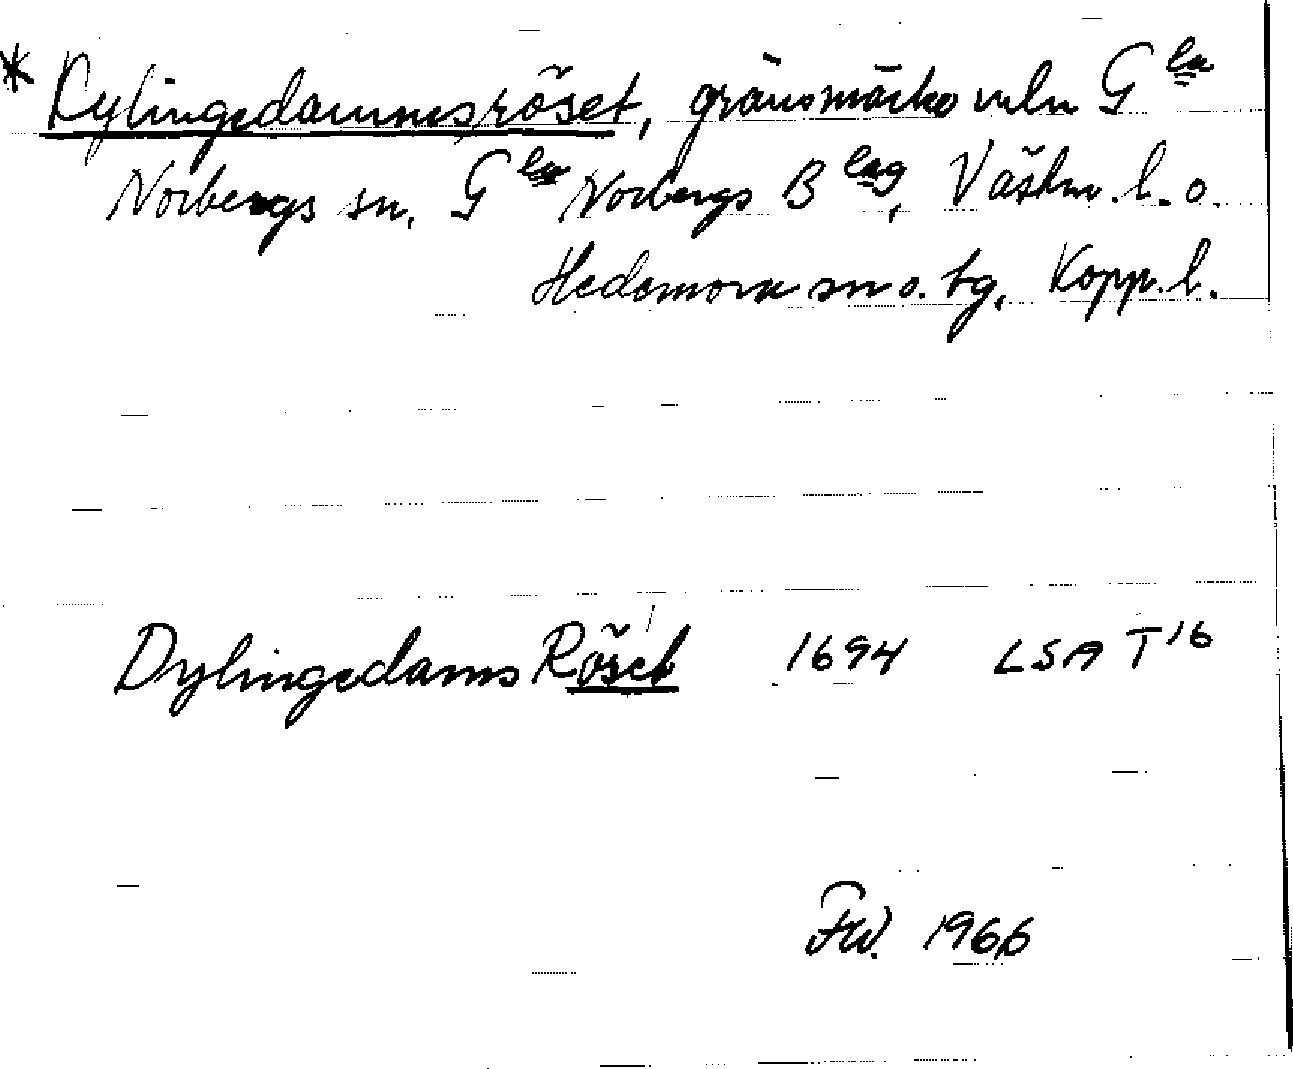 * Dylingedammsröset, gränsmärke mln G la
Norbergs sn, G la Norbergs B lag, Västm. l. o.
Hedemora sn o. tg, Kopp. l.
Dylingedams Röset 1694 LSA T 16
FW. 1966